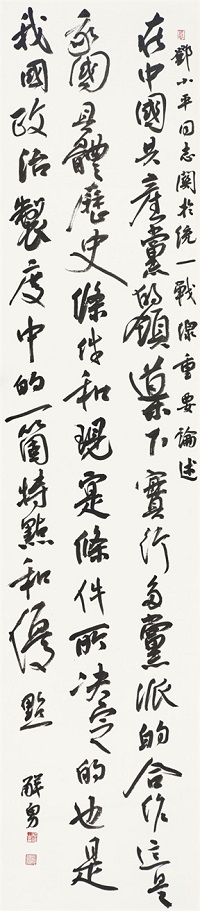 鄧小平同志關於統一戰線重要論述
在中國共產黨的領導下實行多黨派的合作這是
我國具體歷史條件和現實條件所决定的也是
我國政治製度中的一箇特點和優點